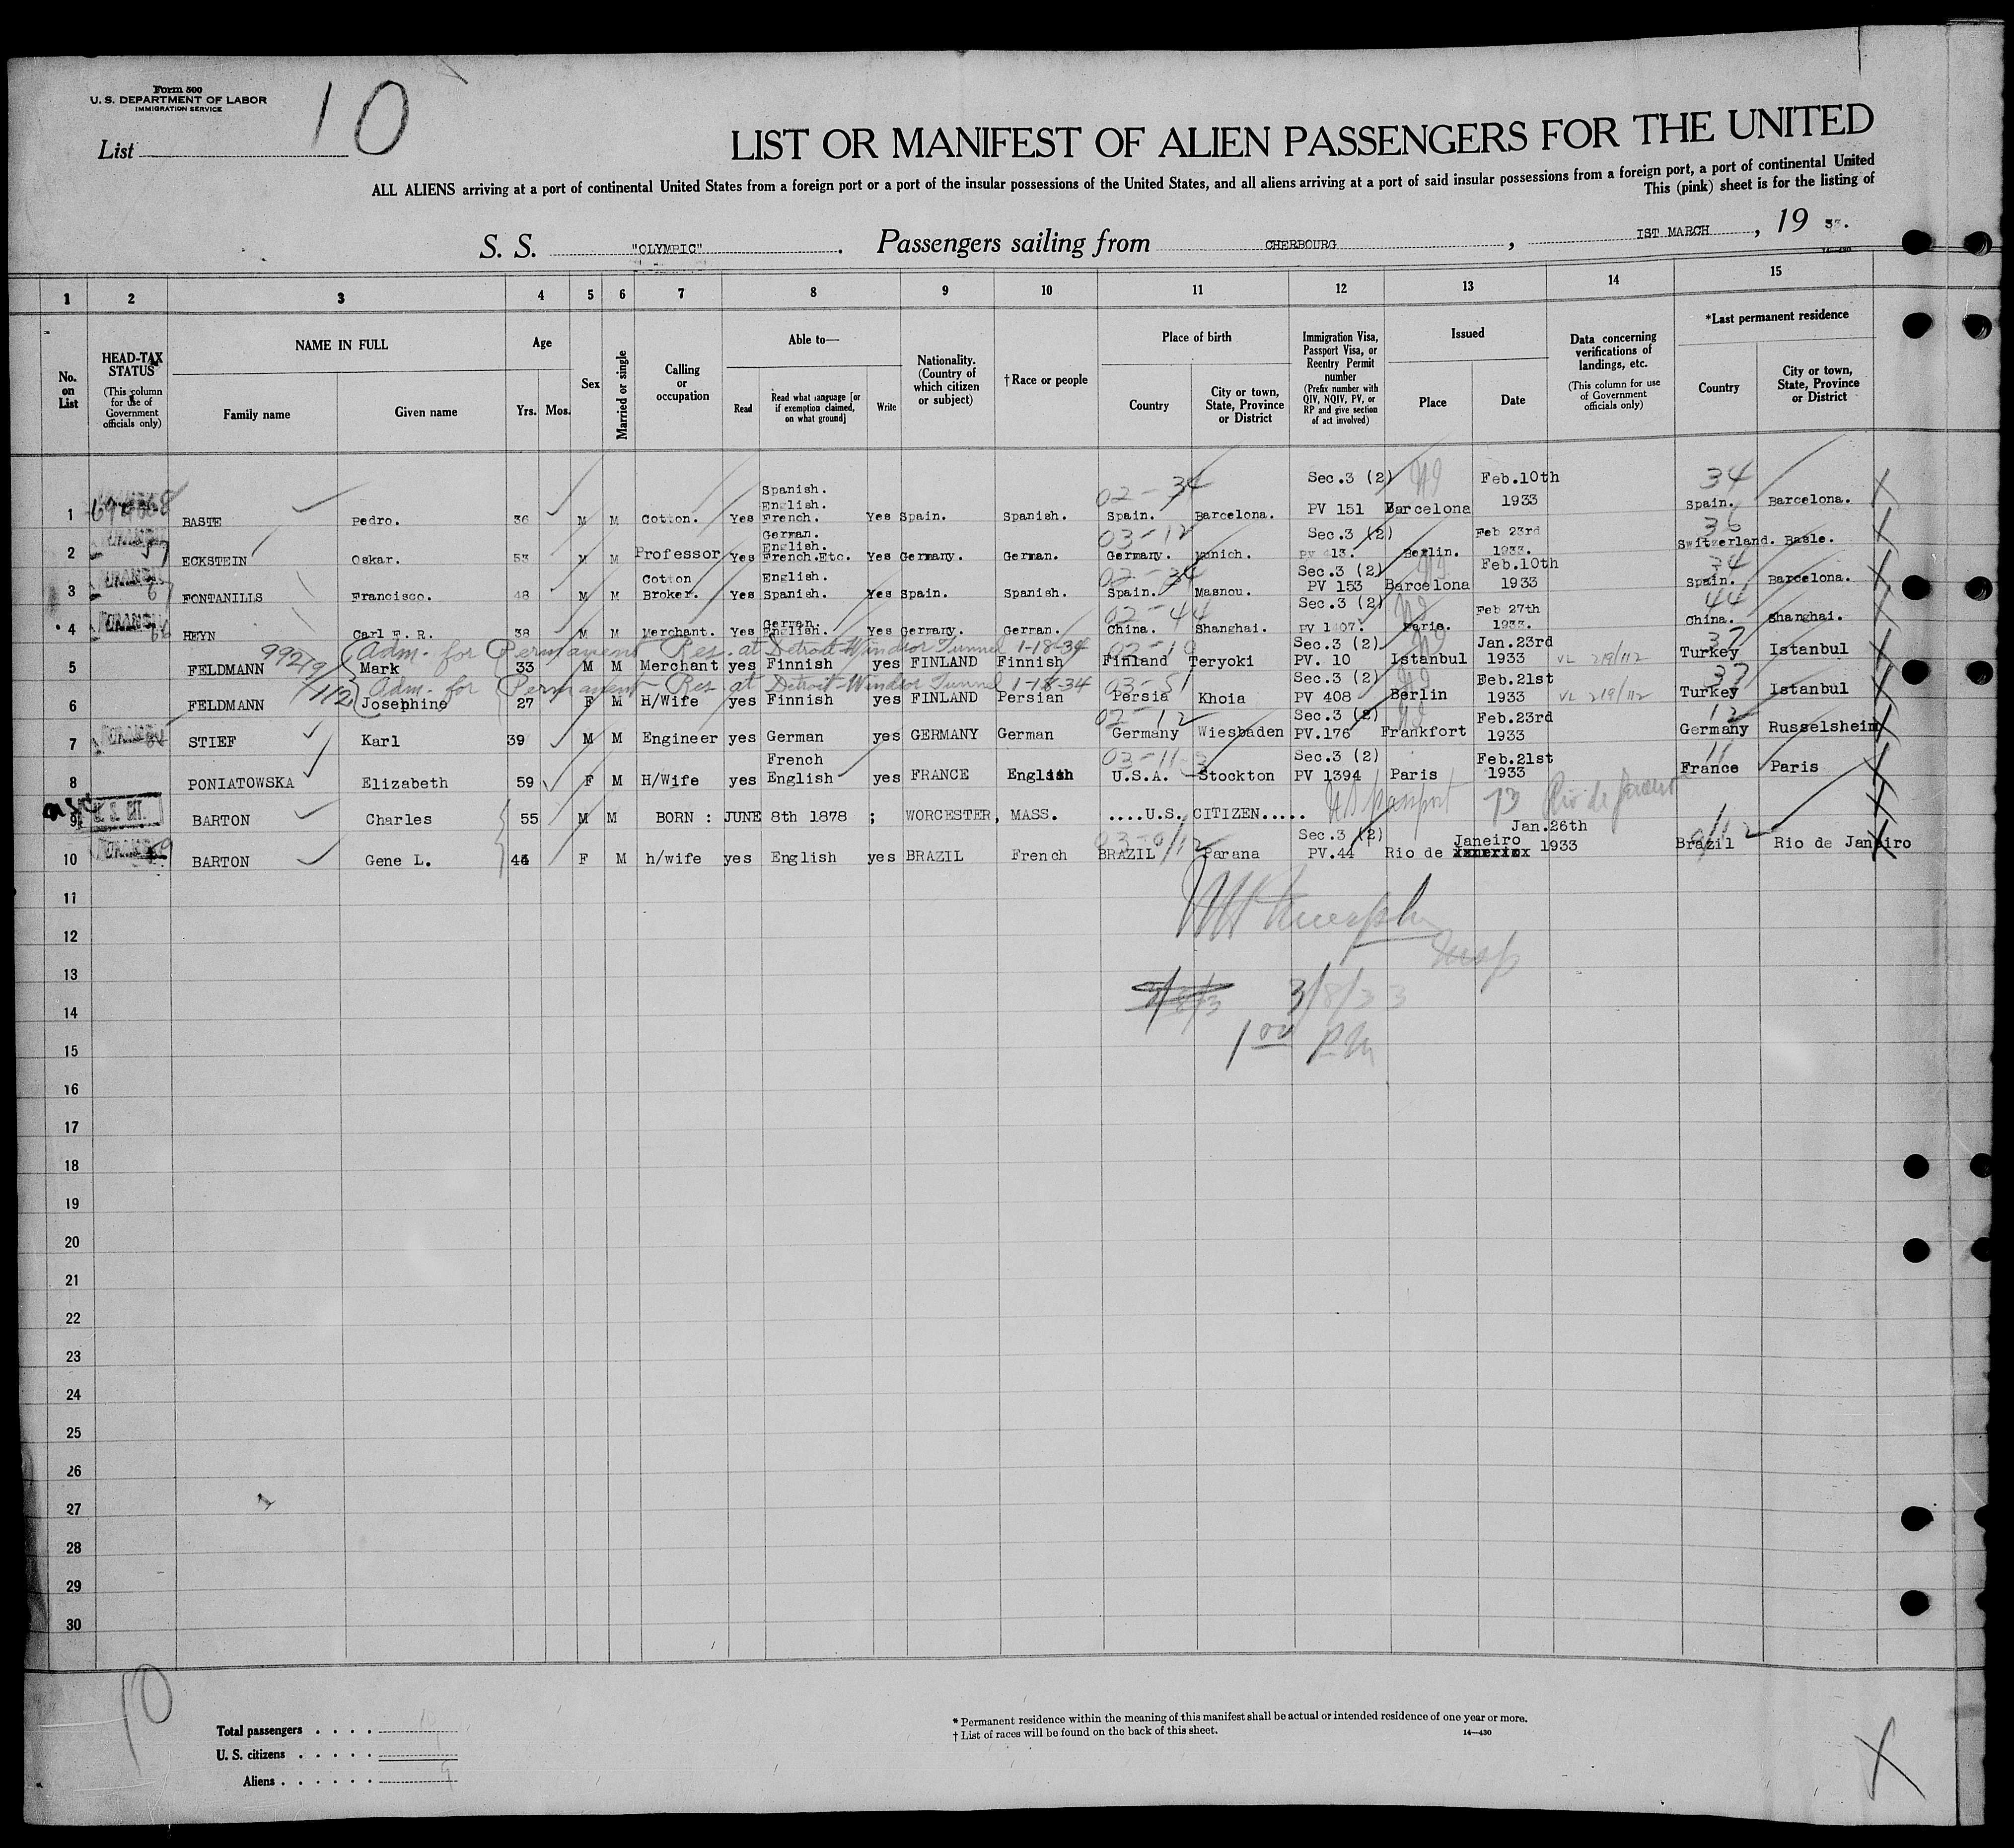 Form 500
U. S. DEPARTMENT OF LABOR
IMMIGRATION SERVICE
List 10
LIST OR MANIFEST OF ALIEN PASSENGERS FOR THE UNITED
ALL ALIENS arriving at a port of continental United States from a foreign port or a port of the insular possessions of the United States, and all aliens arriving at a port of said insular possessions from a foreign port, a port of continental United
This (pink) sheet is for the listing of
S. S. "OLYMPIC". Passengers sailing from CHERBOURG, 1ST MARCH, 19 33.
14—430
1 2 3 4 5 6 7 8 9 10 11 12 13 14 15
No. on List
HEAD-TAX STATUS (This column for use of Government officials only)
NAME IN FULL Family name Given name
Age Yrs. Mos.
Sex
Married or single
Calling or occupation
Able to— Read Read what language [or if exemption claimed, on what ground] Write
Nationality. (Country of which citizen or subject)
† Race or people
Place of birth Country City or town, State, Province or District
Immigration Visa, Passport Visa, or Reentry Permit number (Prefix number with QIV, NQIV, PV, or RP and give section of act involved)
Issued Place Date
Data concerning verifications of landings, etc. (This column for use of Government officials only)
*Last permanent residence Country City or town, State, Province or District
1 BASTE Pedro. 36 M M Cotton. Yes Spanish. English. French. Yes Spain. Spanish. 02-34 Spain. Barcelona. Sec.3 (2) PV 151 Barcelona Feb.10th 1933 34 Spain. Barcelona.
2 ECKSTEIN Oskar. 53 M M Professor Yes German. English. French.Etc. Yes Germany. German. 03-12 Germany. Munich. Sec.3 (2) PV 413. Berlin. Feb 23rd 1933. 36 Switzerland. Basle.
3 FONTANILLS Francisco. 48 M M Cotton Broker. Yes English. Spanish. Yes Spain. Spanish. 02-34 Spain. Masnou. Sec.3 (2) PV 153 Barcelona Feb.10th 1933 34 Spain. Barcelona.
4 HEYN Carl F. R. 38 M M Merchant. Yes German. English. Yes Germany. German. 02-44 China. Shanghai. Sec.3 (2) PV 1407. Paris. Feb 27th 1933. 44 China. Shanghai.
99219/112 Adm. for Permanent Res. at Detroit-Windsor Tunnel 1-18-34
5 FELDMANN Mark 33 M M Merchant yes Finnish yes FINLAND Finnish Finland Teryoki Sec.3 (2) PV. 10 Istanbul Jan.23rd 1933 VL 219/112 37 Turkey Istanbul
Adm. for Permanent Res. at Detroit-Windsor Tunnel 1-18-34
6 FELDMANN Josephine 27 F M H/Wife yes Finnish yes FINLAND Persian 03-51 Persia Khoia Sec.3 (2) PV 408 Berlin Feb.21st 1933 VL 219/112 37 Turkey Istanbul
7 STIEF Karl 39 M M Engineer yes German yes GERMANY German 02-12 Germany Wiesbaden Sec.3 (2) PV.176 Frankfort Feb.23rd 1933 12 Germany Russelsheim
8 PONIATOWSKA Elizabeth 59 F M H/Wife yes French English yes FRANCE English 03-11 U.S.A. Stockton Sec.3 (2) PV 1394 Paris Feb.21st 1933 11 France Paris
9 U. S. CIT. BARTON Charles 55 M M BORN : JUNE 8th 1878 ; WORCESTER, MASS. ....U.S. CITIZEN..... US Passport 13 Rio de Janeiro
10 BARTON Gene L. F M h/wife yes English yes BRAZIL French BRAZIL Parana Sec.3 (2) PV.44 Rio de Janeiro Jan.26th 1933 Brazil Rio de Janeiro
11
12
Insp
13
3/8/33
14
1 00 PM
15
16
17
18
19
20
21
22
23
24
25
26
27
28
29
30
10
Total passengers . . . . 10
U. S. citizens . . . . . 1
Aliens . . . . . . 9
* Permanent residence within the meaning of this manifest shall be actual or intended residence of one year or more.
† List of races will be found on the back of this sheet.
14—430